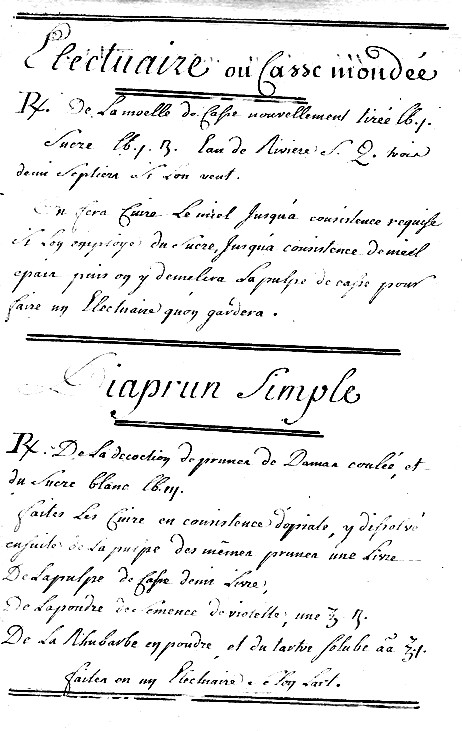 Electuaire ou Casse mondée
R/. De La moelle de Casse nouvellement tirée lb.j.
Sucre lb.j. ß. Eau de Riviere S. Q. trois
demi Septiers Si Lon veut.
On fera Cuire Le miel Jusqua consistence requise
Si Loy employe du Sucre, Jusqua consistence de miel
epais puis oy y demelera La pulpe de casse pour
faire uy Electuaire quoy gardera.
Diaprun Simple
R/. De La decoction de prunes de Damas coulée, et
du Sucre blanc lb.iij.
faites Les Cuire en consistence dopiate, y dissolvé
ensuite de La pulpe des mêmes prunes une Livre
De La pulpe de Casse demi Livre,
De La poudre de Semence de violette, une ℥ ß.
De La Rhubarbe en poudre, et du tartre Solube aã ℥j.
faites en uy Electuaire Seloy Lart.